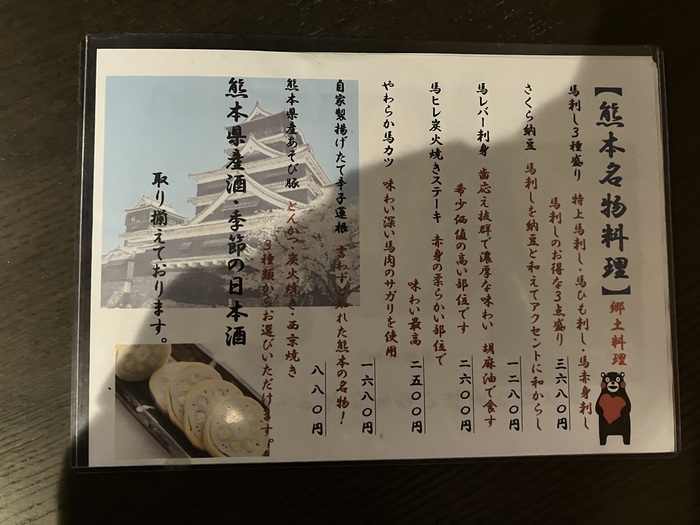 【熊本名物料理】郷土料理
馬刺し3種盛り 特上馬刺し・馬ひも刺し・馬赤身刺し
馬刺しのお得な3点盛り 三六八〇円
さくら納豆 馬刺しを納豆と和えてアクセントに和からし
一二八〇円
馬レバー刺身 歯応え抜群で濃厚な味わい 胡麻油で食す
希少価値の高い部位です 二六〇〇円
馬ヒレ炭火焼きステーキ 赤身の柔らかい部位で
味わい最高 二五〇〇円
やわらか馬カツ 味わい深い馬肉のサガリを使用
一六八〇円
自家製揚げたて辛子蓮根 言わずと知れた熊本の名物!
八八〇円
熊本県産あそび豚 とんかつ・炭火焼き・西京焼き
3種類からお選びいただけます。
熊本県産酒・季節の日本酒
取り揃えております。